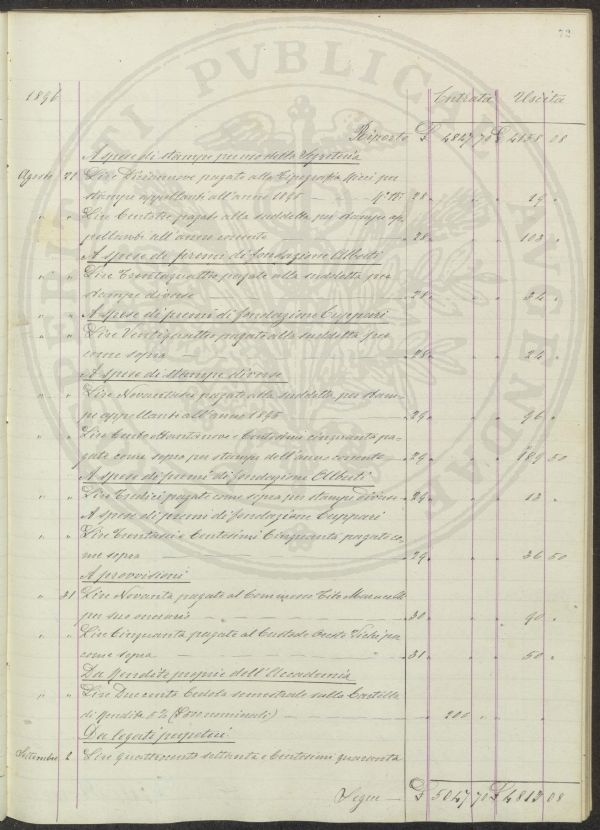 72
PERICLITI PVBLICAE AGENDAE
1896
Entrata Uscita
Riporto £ 4847 70 £ 4138 08
A spese di stampe per uso della Segreteria
Agosto 21 Lire Diciannove pagate alla Tipografia Ricci per
stampe appellanti all'anno 1895 28 19
" " Lire Centotre pagate alla suddetta per stampe ap-
pellanti all'anno corrente 28 103
A spese di premi di fondazione Alberti
" " Lire Trentaquattro pagate alla suddetta per
stampe diverse 28 34
A Spese di premi di fondazione Cuppari
" " Lire Ventiquattro pagate alla suddetta per
come sopra 28 24
A spese di stampe diverse
" " Lire Novantasei pagate alla suddetta per stam-
pe appellanti all'anno 1895 29 96
" " Lire Centottantanove e Centesimi cinquanta pa-
gate come sopra per stampe dell'anno corrente 29 189 50
A spese di premi di fondazione Alberti
" " Lire Tredici pagate come sopra per stampe diverse 29 13
A spese di premi di fondazione Cuppari
" " Lire Trentasei e Centesimi Cinquanta pagate co-
me sopra 29 36 50
A provvisioni
" 31 Lire Novanta pagate al Commesso Tito
per suo onorario 30 90
" " Lire Cinquanta pagate al Custode per
come sopra 31 50
Da Rendite proprie dell'Accademia
" " Lire Duecento Cedola semestrale sulla Cartella
di Rendita 5% (Lire nominali) 200
Da legati
Settembre 2 Lire quattrocento settanta e Centesimi quaranta
Segue £ 5047 70 £ 4813 08